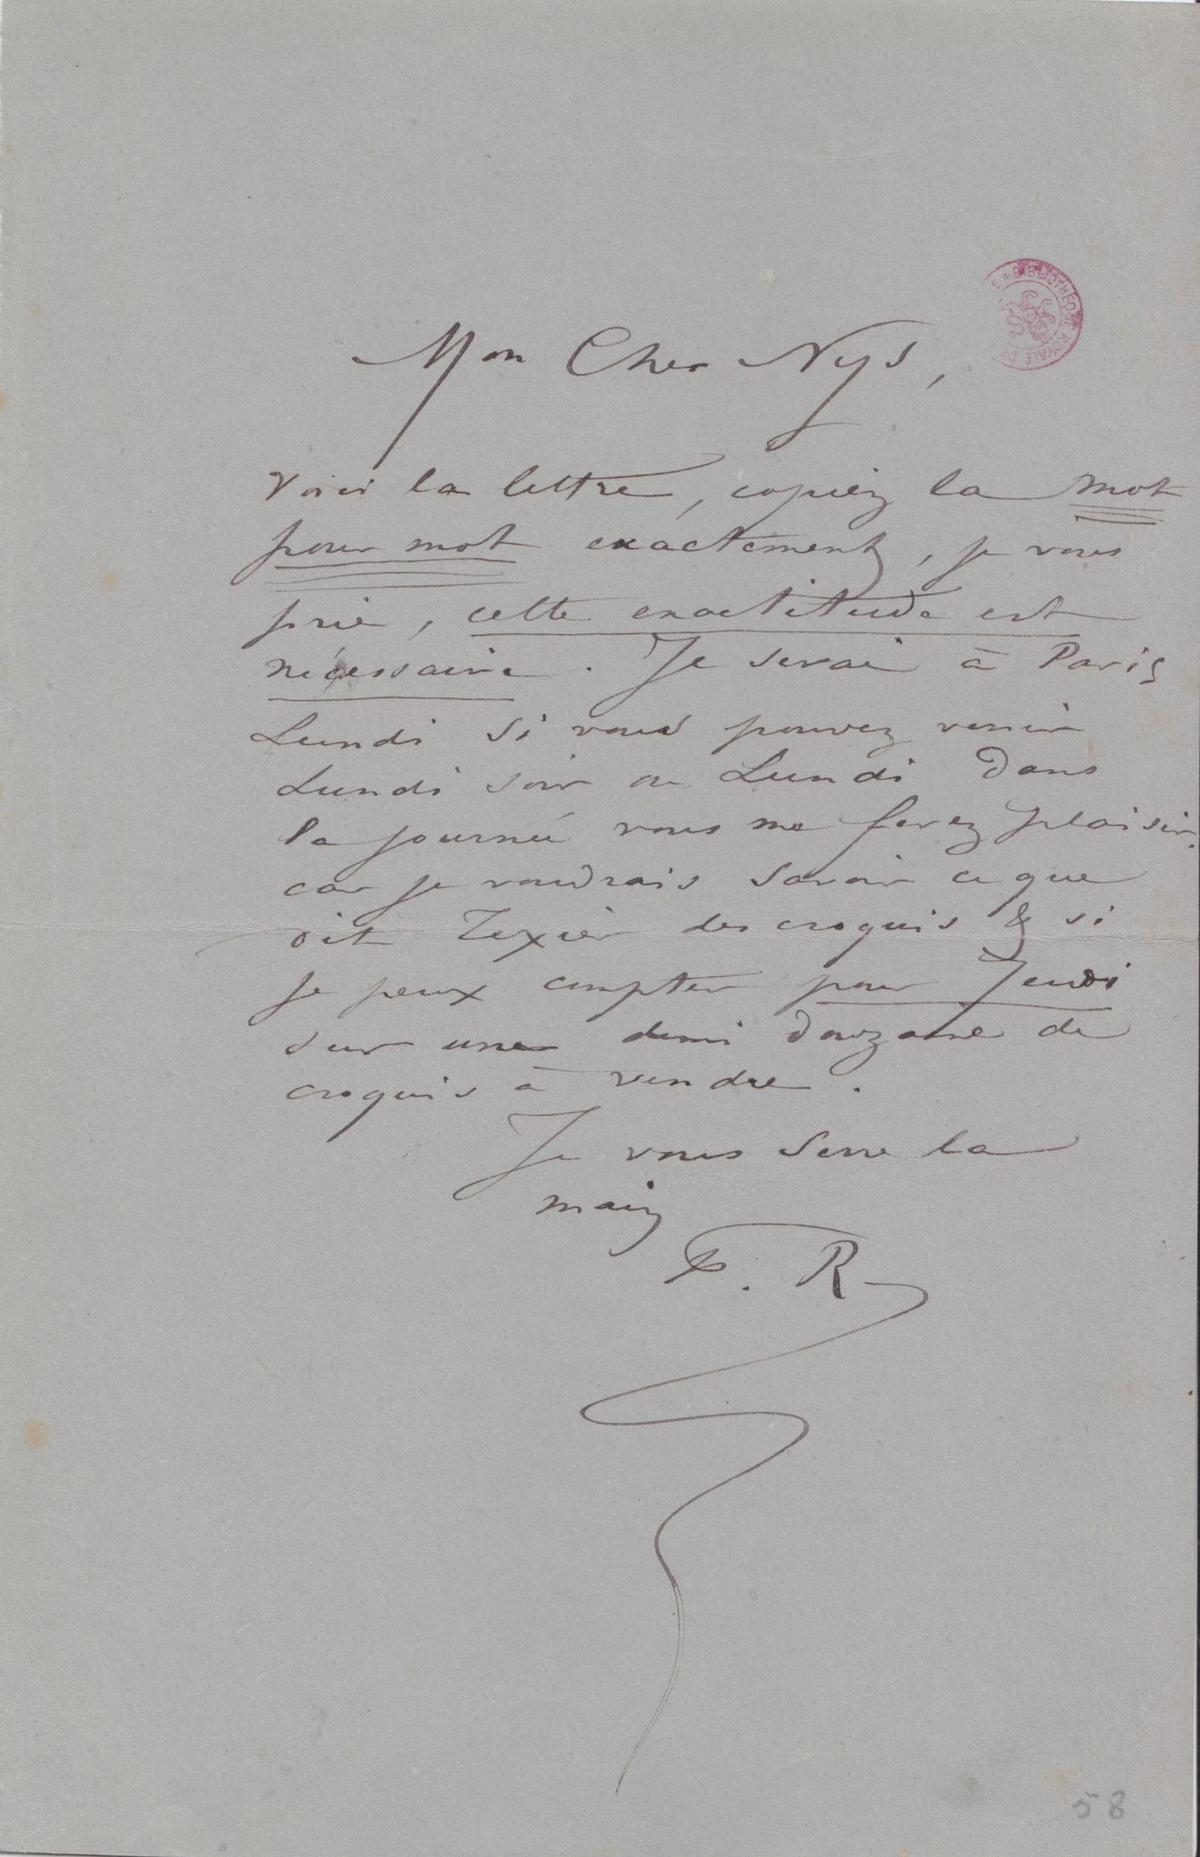 Mon Cher Nys,
BIBLIOTHÈQUE ROYALE DE
Voici la lettre, copiez la mot
pour mot exactement, je vous
prie, cette exactitude est
nécessaire. Je serai à Paris
Lundi si vous pouvez venir
Lundi soir ou Lundi dans
la journée vous me ferez plaisir.
car je voudrais savoir ce que
dit Texier des croquis & si
je peux compter pour Jeudi
sur une demi douzaine de
croquis à vendre.
Je vous serre la
main
F. R
58